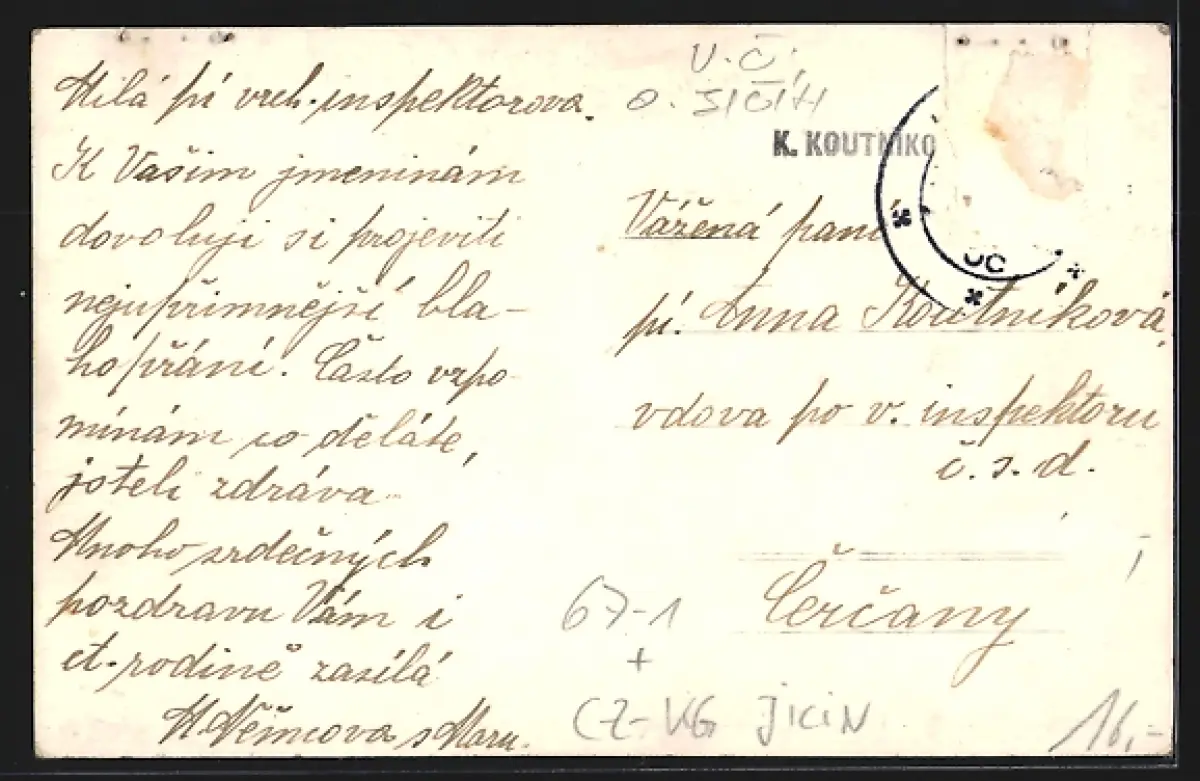 Milá pí vrch. inspektorova.
K Vašim jmeninám
dovoluji si projeviti
nejupřimnější bla-
hopřání. Často vzpo-
mínám co děláte,
jsteli zdráva.
Mnoho srdečných
pozdravu Vám i
ct. rodině zasílá
M Němcova s
V.Č.
O. JIČÍN
K. KOUTNÍKO
Vážená paní
pí. Anna Koutníková,
vdova po v. inspektoru
č. s. d.
Čerčany
67-1
+
CZ-KG JICIN
16,-